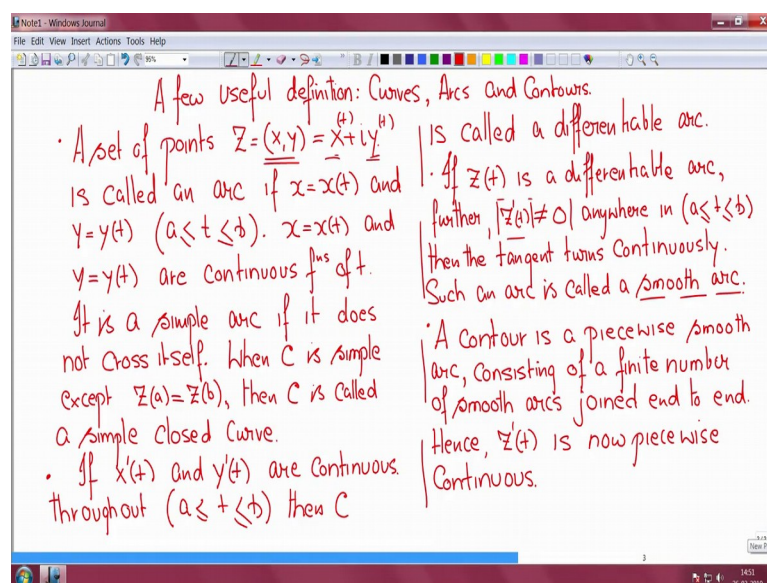 Note1 - Windows Journal
File Edit View Insert Actions Tools Help
95%
A few useful definition: Curves, Arcs and Contours.
· A set of points Z = (x,y) = x(t) + iy(t)
is called an arc if x=x(t) and
y=y(t) (a≤t≤b). x=x(t) and
y=y(t) are continuous fⁿˢ of t.
It is a simple arc if it does
not cross itself. When C is simple
except Z(a)=Z(b), then C is called
a simple closed curve.
· If x'(t) and y'(t) are continuous
throughout (a≤t≤b) then C
is called a differentiable arc.
· If Z(t) is a differentiable arc,
further, |Z'(t)|≠0| anywhere in (a≤t≤b)
then the tangent turns continuously.
Such an arc is called a smooth arc.
· A contour is a piecewise smooth
arc, consisting of a finite number
of smooth arcs joined end to end.
Hence, Z'(t) is now piecewise
continuous.
3
New P
14:51